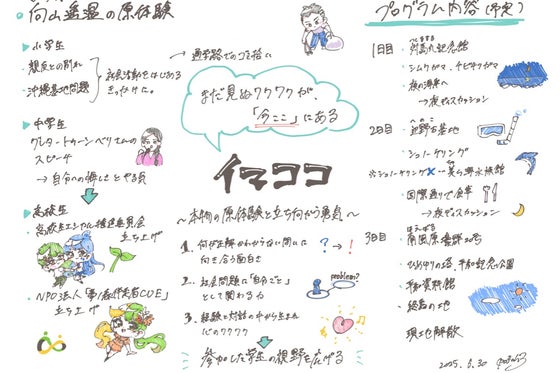 向山遥温の原体験
小学生
親友との別れ
沖縄基地問題
社会活動をはじめる
きっかけに。
→ 通学路でのゴミ拾い
中学生
グレタ・トゥーンベリさんの
スピーチ
→ 自分への悔しさと
高校生
高校生エシカル推進委員会
立ち上げ
NPO法人
立ち上げ
まだ見ぬワクワクが、
「今ここ」にある
イマココ
～本物の原体験と立ち向かう勇気～
1. 何が正解かわからない問いに
向き合う面白さ
? → !
2. 社会問題に「自分ごと」
として関わる力
problem?
3. 経験と対話の中から生まれ
心のワクワク
参加した学生の視野を広げる
プログラム内容(予定)
1日目
対馬丸記念館
シムクガマ、チビチリガマ
夜の海岸へ
→ 夜ディスカッション
2日目
辺野古基地
シュノーケリング
※シュノーケリング× → 美ら海水族館
国際通りで食事
→ 夜ディスカッション
3日目
南風原壕群20号
ひめゆりの塔、平和記念公園
平和資料館
終焉の地
現地解散
2025.5.30